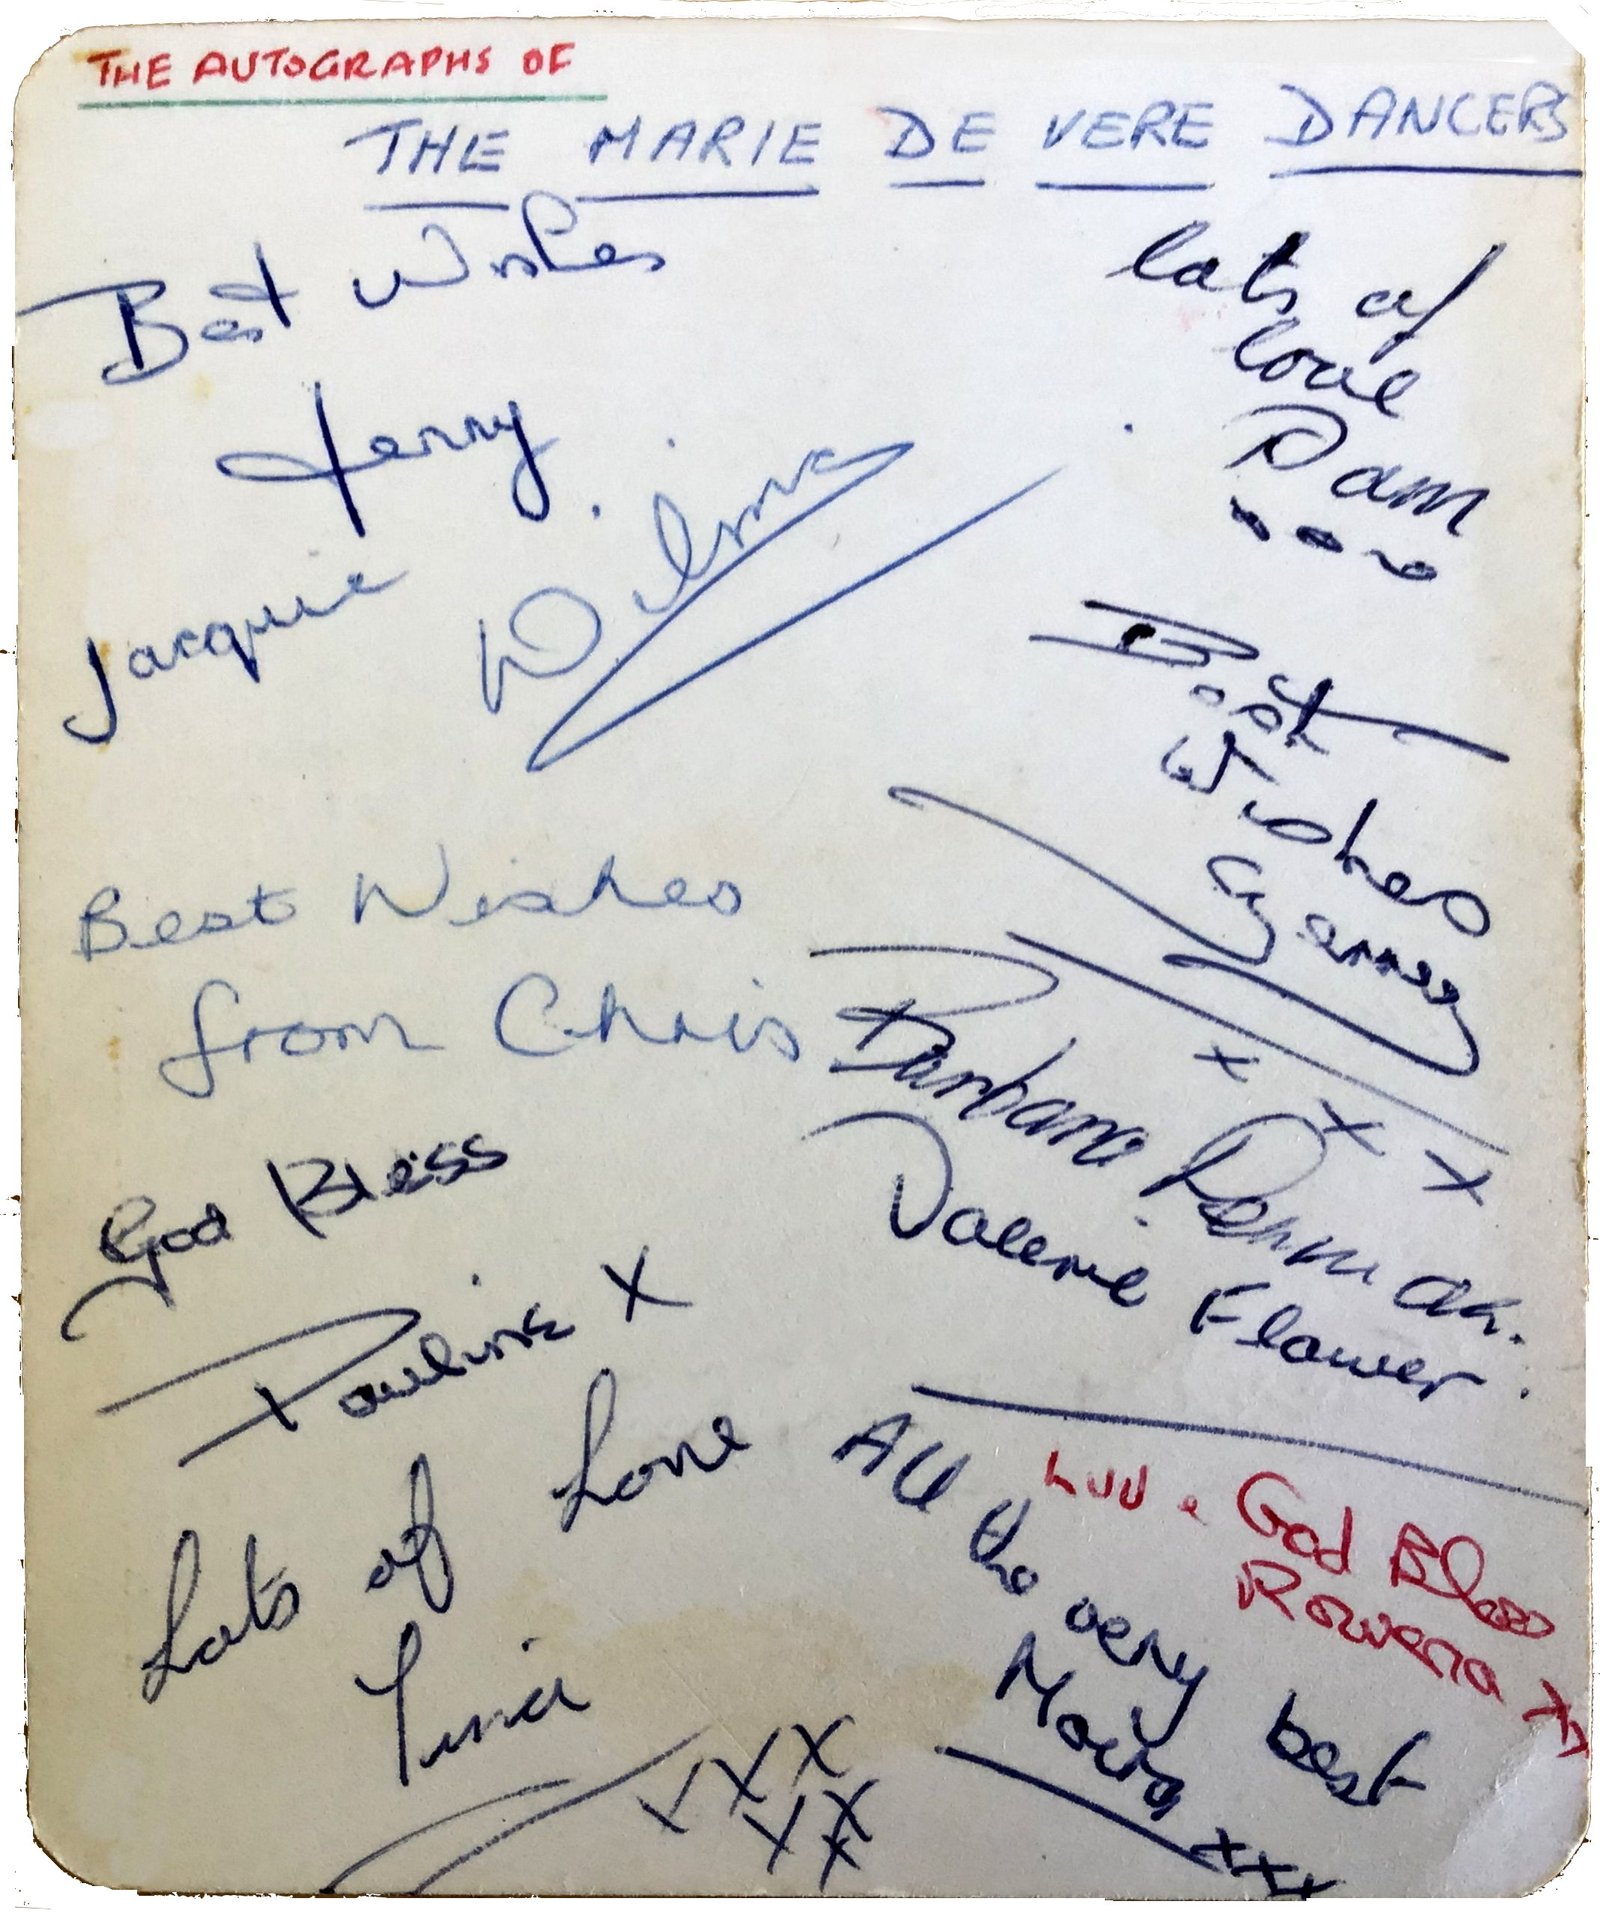 THE AUTOGRAPHS OF
THE MARIE DE VERE DANCERS
Best Wishes
Jenny
Jacquie
Wilma
lots of
love
Pam
Best
Wishes
Gerry
x x x
Best Wishes
from Chris
God Bless
Pauline X
Lots of Love
Tina
XXX
XX
X
Barbara
Valerie Flower.
Luv & God Bless
Rowena xx
All the very best
Moira
xxx